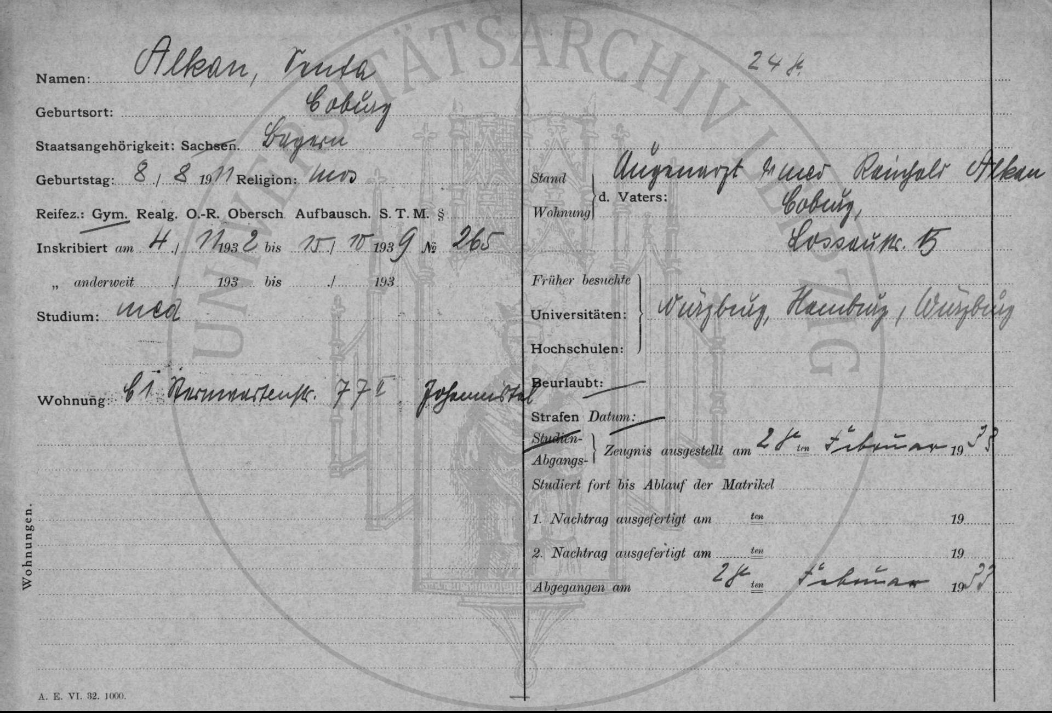 Namen: Alkan, Senta
Geburtsort: Coburg
Staatsangehörigkeit: Sachsen. Bayern
Geburtstag: 8 / 8 1911 Religion: mos
Reifez.: Gym. Realg. O.-R. Obersch. Aufbausch. S. T. M. §
Inskribiert am 4 / 11 1932 bis 15 / 10 1939 № 265
„ anderweit / 193 bis / 193
Studium: med
Wohnung: C1 Sternwartenstr. 77 II Johannistal
Wohnungen.
A. E. VI. 32. 1000.
Stand
Wohnung
d. Vaters: Augenarzt Dr med Reinhold Alkan
Coburg,
Lossaustr. 15
Früher besuchte
Universitäten: Würzburg, Hamburg, Würzburg
Hochschulen:
Beurlaubt:
Strafen Datum:
Studien-
Abgangs- Zeugnis ausgestellt am 28 ten Februar 1933
Studiert fort bis Ablauf der Matrikel
1. Nachtrag ausgefertigt am ten 19
2. Nachtrag ausgefertigt am ten 19
Abgegangen am 28 ten Februar 1933
UNIVERSITÄTSARCHIV LEIPZIG